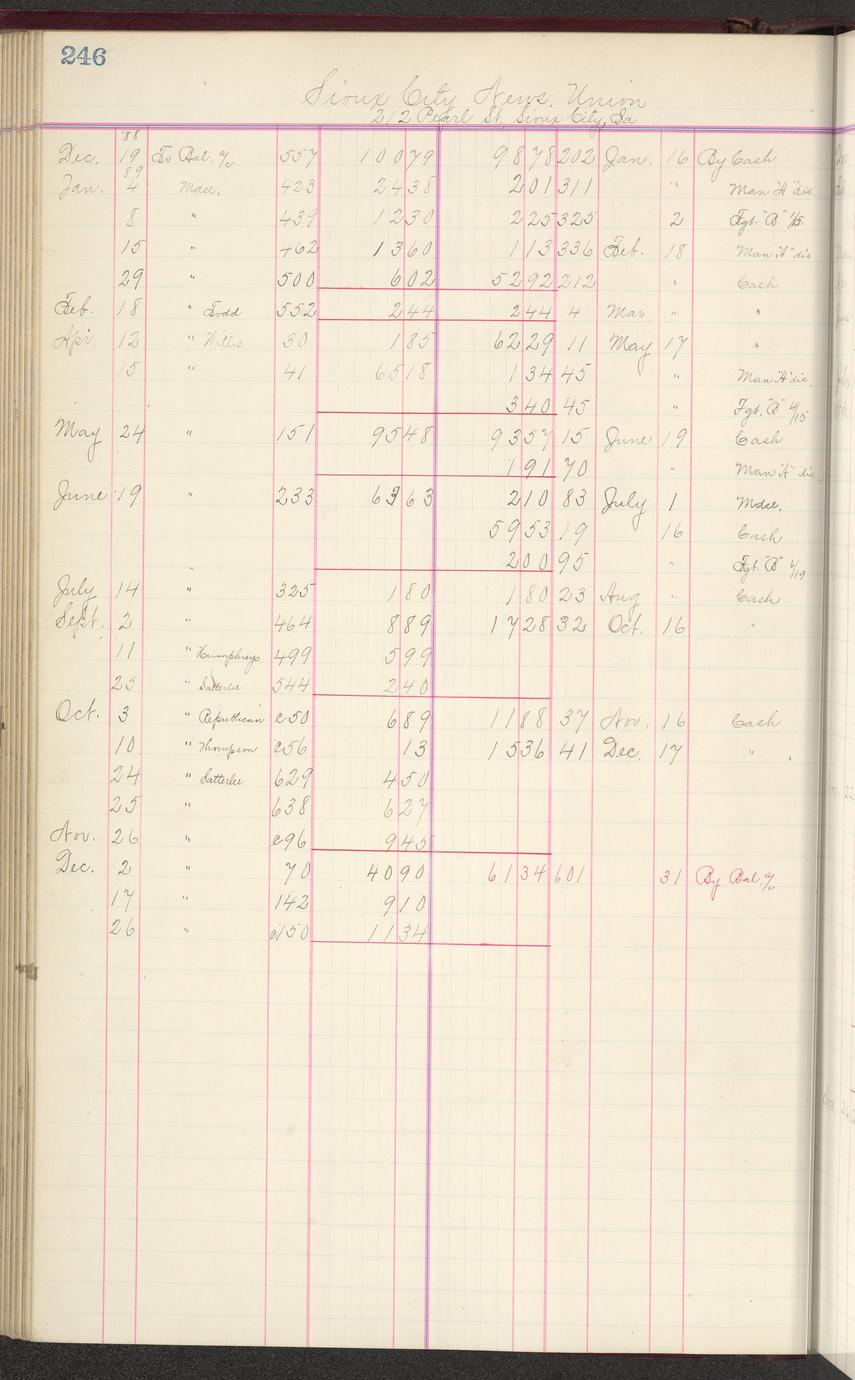 246
Sioux City News. Union
212 Pearl St, Sioux City, Ia
'88
Dec. 19 To Bal. % 557 100 79 98 78 202 Jan. 16 By Cash
89
Jan. 4 Mdse. 423 24 38 2 01 311 " Man "A" dis
8 " 439 12 30 2 25 325 2 Fgt. "B" 1/5
15 " 462 13 60 1 13 336 Feb. 18 Man "A" dis
29 " 500 6 02 52 92 212 " Cash
Feb. 18 " Todd 552 2 44 2 44 4 Mar " "
Apr. 12 " Willis 30 1 85 62 29 11 May 17 "
15 " 41 65 18 1 34 45 " Man "A" dis.
3 40 45 " Fgt. "B" 4/15
May 24 " 151 95 48 93 57 15 June 19 Cash
1 91 70 " Man "A" dis.
June 19 " 233 63 63 2 10 83 July 1 Mdse.
59 53 19 16 Cash
2 00 95 " Fgt. "B" 6/19
July 14 " 325 1 80 1 80 23 Aug " Cash
Sept. 2 " 464 8 89 17 28 32 Oct. 16 "
11 " Humphreys 499 5 99
25 " Satterlee 544 2 40
Oct. 3 " Republican c50 6 89 11 88 37 Nov. 16 Cash
10 " Thompson c56 13 15 36 41 Dec. 17 "
24 " Satterlee 629 4 50
25 " 638 6 27
Nov. 26 " c96 9 45
Dec. 2 " 70 40 90 61 34 601 31 By Bal. %
17 " 142 9 10
26 " c150 11 34